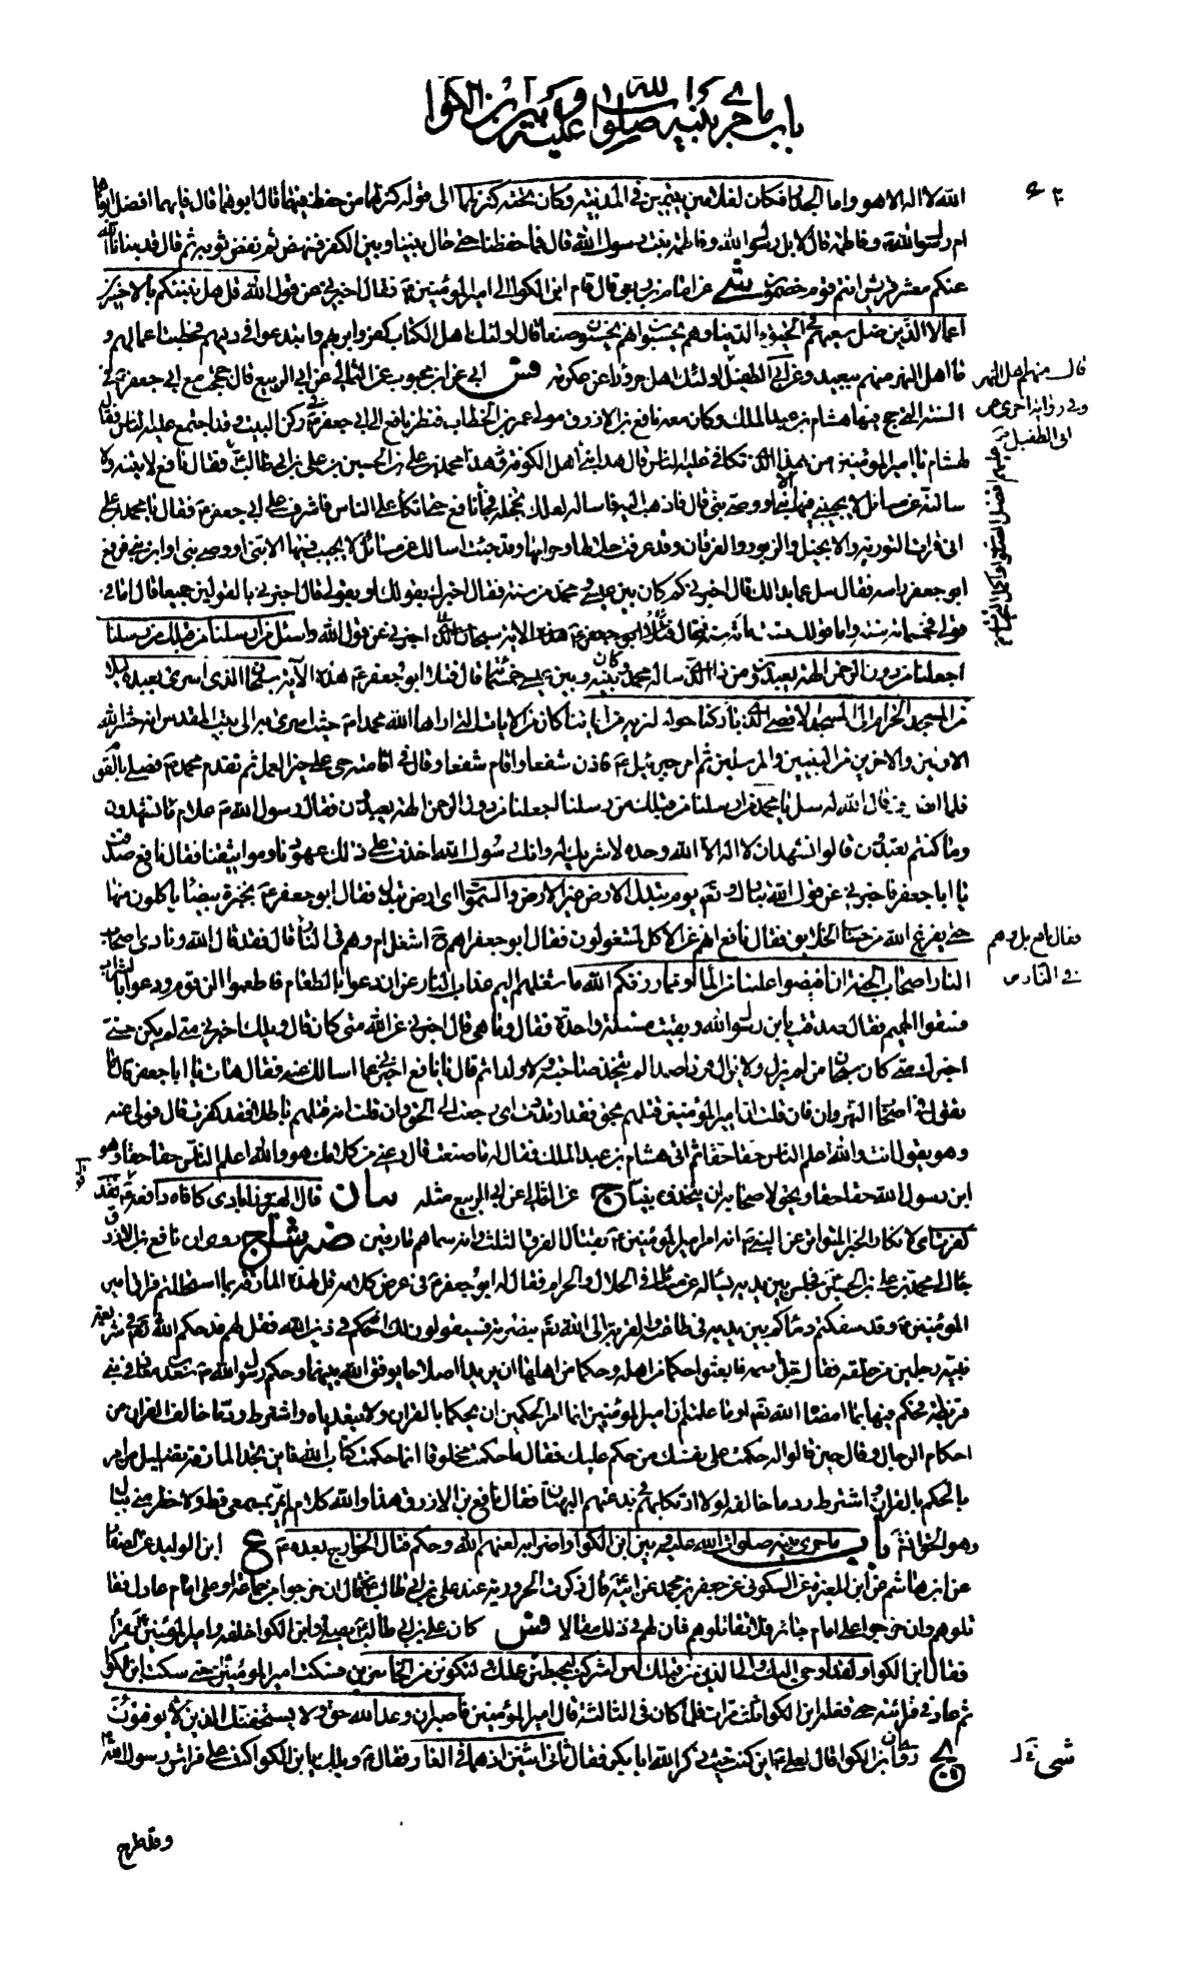 باب ما جرى بينه صلوات الله عليه وبين ابن الكوا
الله لا اله الا هو واما الجدار فكان لغلامين يتيمين في المدينة وكان تحته كنز لهما الى قوله كنزلهما من حفظ فيهما قال ابوهما قال فايهما افضل ابوهما
ام رسول الله وفاطمة قال لا بل رسول الله وفاطمة بنت رسول الله قال فما حفظنا حتى حال بيننا وبين الكفر فنهض ثم نفض ثوبه ثم قال قد نبأنا الله
عنكم معشر قريش انتم قوم خصمون شى عن امام بن ربعي قال قام ابن الكوا الى امير المؤمنين ع فقال اخبرني عن قول الله قل هل ننبئكم بالاخسرين
اعمالا الذين ضل سعيهم في الحيوة الدنيا وهم يحسبون انهم يحسنون صنعا قال اولئك اهل الكتاب كفروا بربهم وابتدعوا في دينهم فحبطت اعمالهم و
ما اهل النهر منهم ببعيد وعن ابي الطفيل اولئك اهل حروراء عن عكرمة فس ابي عن ابن محبوب عن الثمالي عن ابي الربيع قال حججت مع ابي جعفر ع في
السنة التي حج فيها هشام بن عبد الملك وكان معه نافع بن الازرق مولى عمر بن الخطاب فنظر نافع الى ابي جعفر ع في ركن البيت وقد اجتمع عليه الناس فقال
لهشام يا امير المؤمنين من هذا الذي تكافى عليه الناس قال هذا نبي اهل الكوفة هذا محمد بن علي بن الحسين بن علي بن ابي طالب فقال نافع لاتينه ولا
سالنه عن مسائل لا يجيبني فيها الا نبي او وصي نبي قال فاذهب اليه فاساله لعلك تخجله فجاء نافع حتى اتكأ على الناس فاشرف على ابي جعفر ع فقال يا محمد بن علي
اني قرات التورية والانجيل والزبور والفرقان وقد عرفت حلالها وحرامها وقد جئت اسالك عن مسائل لا يجيب فيها الا نبي او وصي نبي او ابن نبي فرفع
ابو جعفر راسه فقال سل عما بدا لك قال اخبرني كم كان بين عيسى ومحمد من سنة فقال اخبرك بقولك او بقولي قال اخبرني بالقولين جميعا قال اما في
قولي فخمسمائة سنة واما قولك فستمائة سنة فقال فتلا ابو جعفر ع هذه الاية سبحان الذي اخبرني عن قول الله واسئل من ارسلنا من قبلك من رسلنا
اجعلنا من دون الرحمن الهة يعبدون من ذا الذي ساله محمد وكان بينه وبين عيسى خمسمائة قال فتلا ابو جعفر ع هذه الآية سبحان الذي اسرى بعبده ليلا
من المسجد الحرام الى المسجد الاقصى الذي باركنا حوله لنريه من اياتنا كان من الايات التي اراها الله محمدا ص حيث اسرى به الى بيت المقدس انه حشر الله
الاولين والاخرين من النبيين والمرسلين ثم امر جبرئيل ع فاذن شفعا واقام شفعا وقال في اقامته حي على خير العمل ثم تقدم محمد ص فصلى بالقوم
فلما انصرف قال الله له سل يا محمد من ارسلنا من قبلك من رسلنا اجعلنا من دون الرحمن الهة يعبدون فقال رسول الله ص علام تشهدون
وما كنتم تعبدون قالوا نشهد ان لا اله الا الله وحده لا شريك له وانك رسول الله اخذت على ذلك عهودنا ومواثيقنا فقال نافع صدقت
يا ابا جعفر فاخبرني عن قول الله تبارك وتعم يوم تبدل الارض غير الارض والسموات اي ارض تبدل فقال ابو جعفر ع بخبزة بيضاء ياكلون منها
حتى يفرغ الله من حساب الخلايق فقال نافع انهم عن الاكل لمشغولون فقال ابو جعفر اهم ح اشغل ام وهم في النار قال فقد قال الله ونادى اصحاب
النار اصحاب الجنة ان افيضوا علينا من الماء او مما رزقكم الله ما شغلهم اليم عذاب النار عن ان دعوا بالطعام فاطعموا الزقوم ودعوا بالشراب
فسقوا الحميم فقال صدقت يابن رسول الله وبقيت مسئلة واحدة فقال وما هي قال اخبرني عن الله متى كان قال ويلك اخبرني متى لم يكن حتى
اخبرك متى كان سبحان من لم يزل ولا يزال فردا صمدا لم يتخذ صاحبة ولا ولدا ثم قال يا نافع اخبرني عما اسالك عنه فقال هات يا ابا جعفر قال ما
تقول في اصحاب النهروان فان قلت ان امير المؤمنين قتلهم بحق فقد ارتددت اي رجعت الى الحق وان قلت انه قتلهم باطلا فقد كفرت قال فولى عنه
وهو يقول انت والله اعلم الناس حقا حقا ثم اتى هشام بن عبد الملك فقال له ما صنعت قال دعني من كلامك هو والله اعلم الناس حقا حقا وهو
ابن رسول الله حقا حقا ويحق لاصحابه ان يتخذوه نبيا ج عن الثمالي عن ابي الربيع مثله
كفرت اي لانكار الخبر المتواتر عن النبي ص انه امر امير المؤمنين ع بقتال الفرق الثلث وانه سماهم مارقين ضه شا ج روي ان نافع بن الازرق
جاء الى محمد بن علي بن الحسين فجلس بين يديه يساله عن مسائل في الحلال والحرام فقال له ابو جعفر ع في عرض كلامه قل لهذه المارقة بما استحللتم فراق امير
المؤمنين ع وقد سفكتم دماءكم بين يديه في طاعته والقربة الى الله تعم بنصرته فسيقولون لك انه حكم في دين الله فقل لهم قد حكم الله تعم في شريعة
نبيه رجلين من خلقه فقال فابعثوا حكما من اهله وحكما من اهلها ان يريدا اصلاحا يوفق الله بينهما وحكم رسول الله ص سعد بن معاذ في بني
قريظة فحكم فيها بما امضاه الله تعم او ما علمتم ان امير المؤمنين انما امر الحكمين ان يحكما بالقران ولا يتعدياه واشترط رد ما خالف القران من
احكام الرجال وقال حين قالوا له حكمت على نفسك من حكم عليك فقال ما حكمت مخلوقا انما حكمت كتاب الله فاين تجد المارقة تضليل من امر
بالحكم بالقران واشترط رد ما خالفه لولا ارتكابهم في بدعتهم البهتان فقال نافع بن الازرق هذا والله كلام ما مر بمسمعي قط ولا خطر مني ببال
وهو الحق انشم باب ما جرى بينه صلوات الله عليه وبين ابن الكوا واضرابه لعنهم الله وحكم قتال الخوارج بعده ع ع ابن الوليد عن الصفار
عن ابن هاشم عن ابن المغيرة عن السكوني عن جعفر بن محمد عن ابيه ع قال ذكرت الحرورية عند علي بن ابي طالب ع فقال ان خرجوا من جماعة او على امام عادل فقا
تلوهم وان خرجوا على امام جائر فلا تقاتلوهم فان لهم في ذلك مقالا فس كان علي بن ابي طالب ع يصلي وابن الكوا خلفه وامير المؤمنين ع يقرا
فقال ابن الكوا ولقد اوحي اليك والى الذين من قبلك لئن اشركت ليحبطن عملك ولتكونن من الخاسرين فسكت امير المؤمنين حتى سكت ابن الكوا
ثم عاد في قراءته حتى فعله ابن الكوا ثلث مرات فلما كان في الثالثة قال امير المؤمنين فاصبر ان وعد الله حق ولا يستخفنك الذين لا يوقنون
يج روي ان ابن الكوا قال لعلي ع اين كنت حيث ذكر الله ابا بكر فقال ثاني اثنين اذ هما في الغار فقال ع ويلك يابن الكوا كنت على فراش رسول الله
قال منهم اهل النهر
وفي رواية اخرى ص
ابي الطفيل
فقال نافع بل وهم
في النار ص
وقد طرح